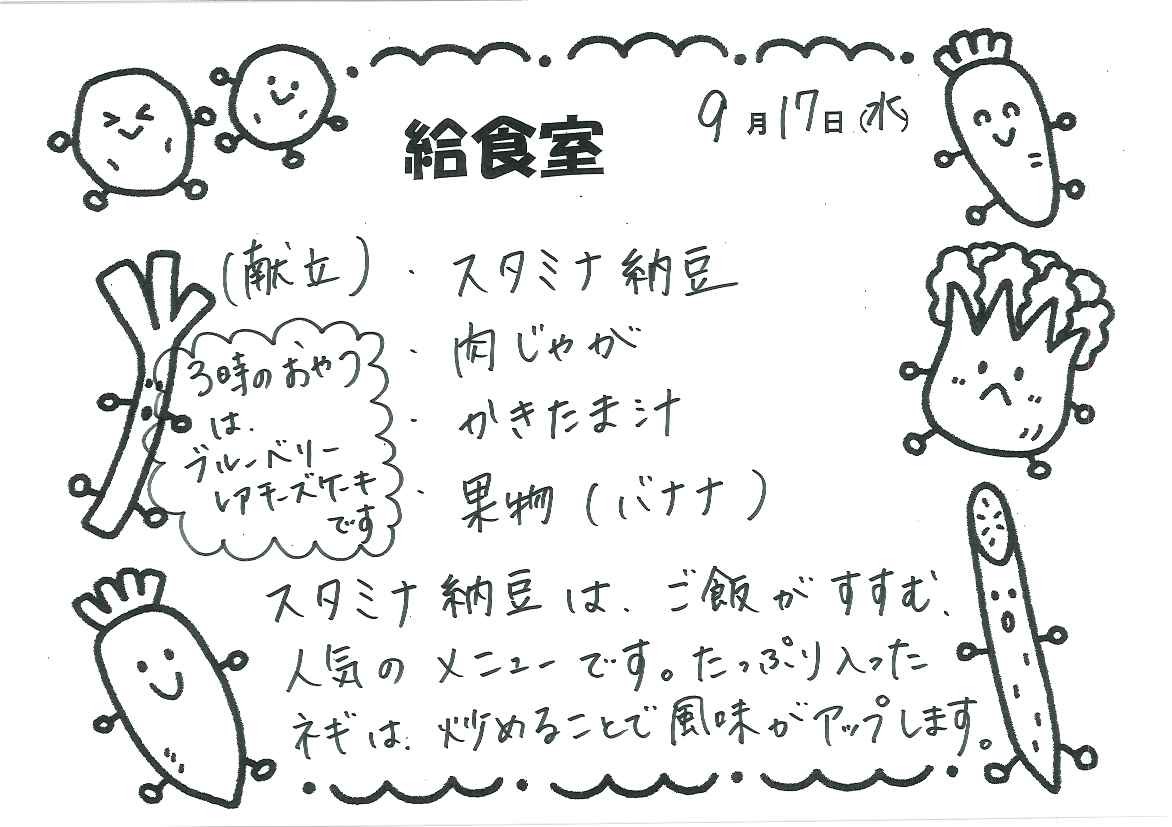 給食室
9月17日(水)
(献立)・スタミナ納豆
・肉じゃが
・かきたま汁
・果物(バナナ)
3時のおやつ
は、
ブルーベリー
レアチーズケーキ
です
スタミナ納豆は、ご飯がすすむ、
人気のメニューです。たっぷり入った
ネギは、炒めることで風味がアップします。